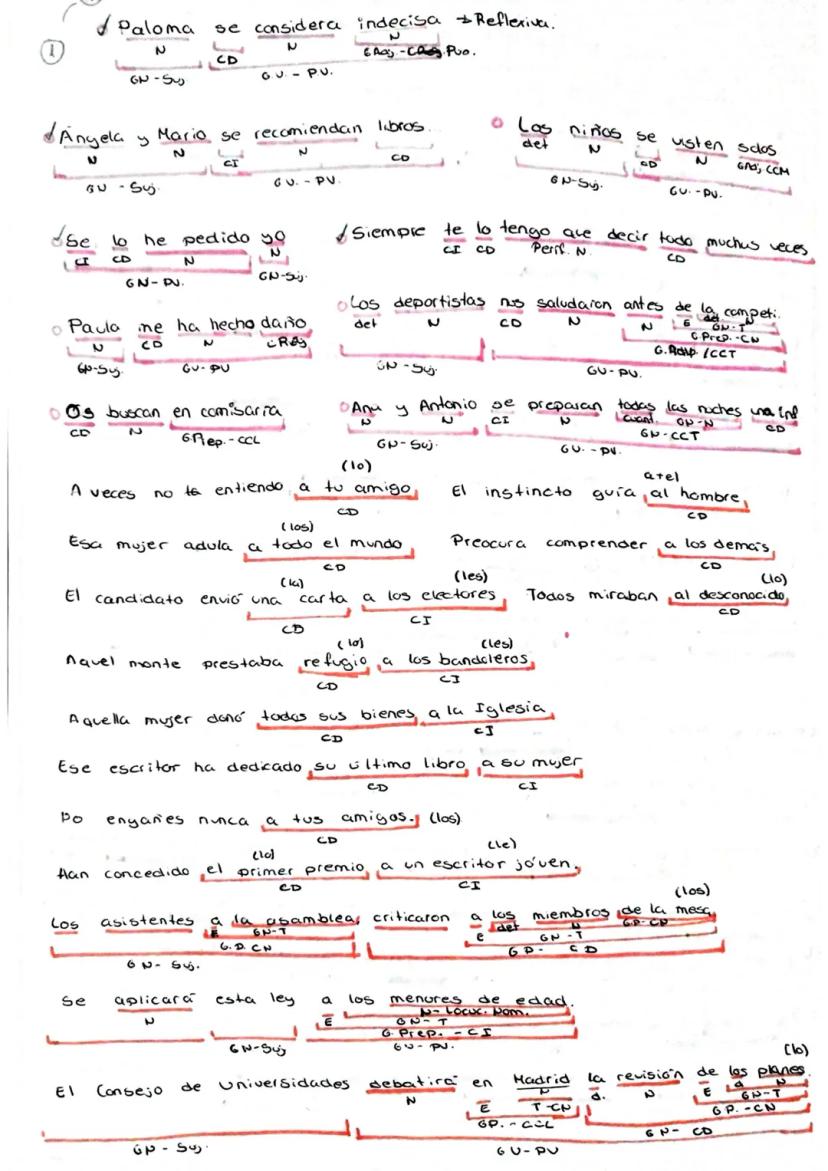 ① ✓ Paloma se considera indecisa → Reflexiva.
N CD N N
GAdj - CReg Pvo.
GN-Suj G.V. - P.V.
✓ Ángela y Mario se recomiendan libros.
N N CI N CD
GV - Suj G.V. - PV.
Los niños se visten solos
det N CD N GAdj CCM
GN-Suj. GV. -PV.
✓ Se lo he pedido yo
CI CD N N
GN- PV. GN-Suj.
✓ Siempre te lo tengo que decir todo muchas veces
CI CD Perif. N. CD
Paula me ha hecho daño
N CD N CReg
GN-Suj. GV-PV
Los deportistas nos saludaron antes de la competi.
det N CD N N E det N
GN-T
G Prep.-CN
G.Adv. /CCT
GN - Suj GV-PV.
Os buscan en comisaria
CD N G.Prep.-CCL
Ana y Antonio se preparan todas las noches una inf
N N CI N Cuant. GN-N CD
GN-CCT
GN-Suj GV. -PV.
(lo)
A veces no te entiendo a tu amigo
CD
a+el
El instinto guía al hombre
CD
(los)
Esa mujer adula a todo el mundo
CD
Preocura comprender a los demás
CD
(la) (les)
El candidato envió una carta a los electores
CD CI
(lo)
Todos miraban al desconocido
CD
(lo) (les)
Aquel monte prestaba refugio a los bandoleros
CD CI
Aquella mujer donó todos sus bienes a la Iglesia
CD CI
Ese escritor ha dedicado su último libro a su mujer
CD CI
No engañes nunca a tus amigos. (los)
CD
(lo) (le)
Han concedido el primer premio a un escritor jóven.
CD CI
(los)
Los asistentes a la asamblea criticaron a los miembros de la mesa
E GN-T E det N G.P.-CN
G.P. CN GN-T
GN- Suj. G P- CD
Se aplicará esta ley a los menores de edad.
N N-Locuc. Nom.
E GN- T
G.Prep. - CI
GN-Suj GV-PV.
(lo)
El Consejo de Universidades debatirá en Madrid la revisión de los planes.
N E N d. N E d N
T-CN GN-T
GP. - CCL GP.-CN
GN- CD
GN- Suj. GV-PV